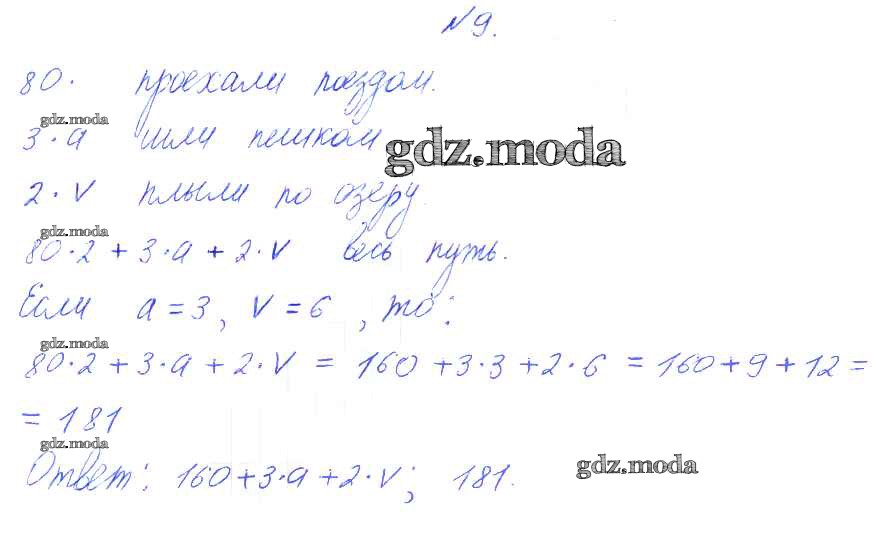 №9.
80· проехали поездом.
gdz.moda
3·a шли пешком
gdz.moda
2·v плыли по озеру.
gdz.moda
80·2 + 3·a + 2·v весь путь.
Если a = 3, v = 6, то:
gdz.moda
80·2 + 3·a + 2·v = 160 + 3·3 + 2·6 = 160 + 9 + 12 =
= 181
gdz.moda
Ответ: 160 + 3·a + 2·v; 181.
gdz.moda